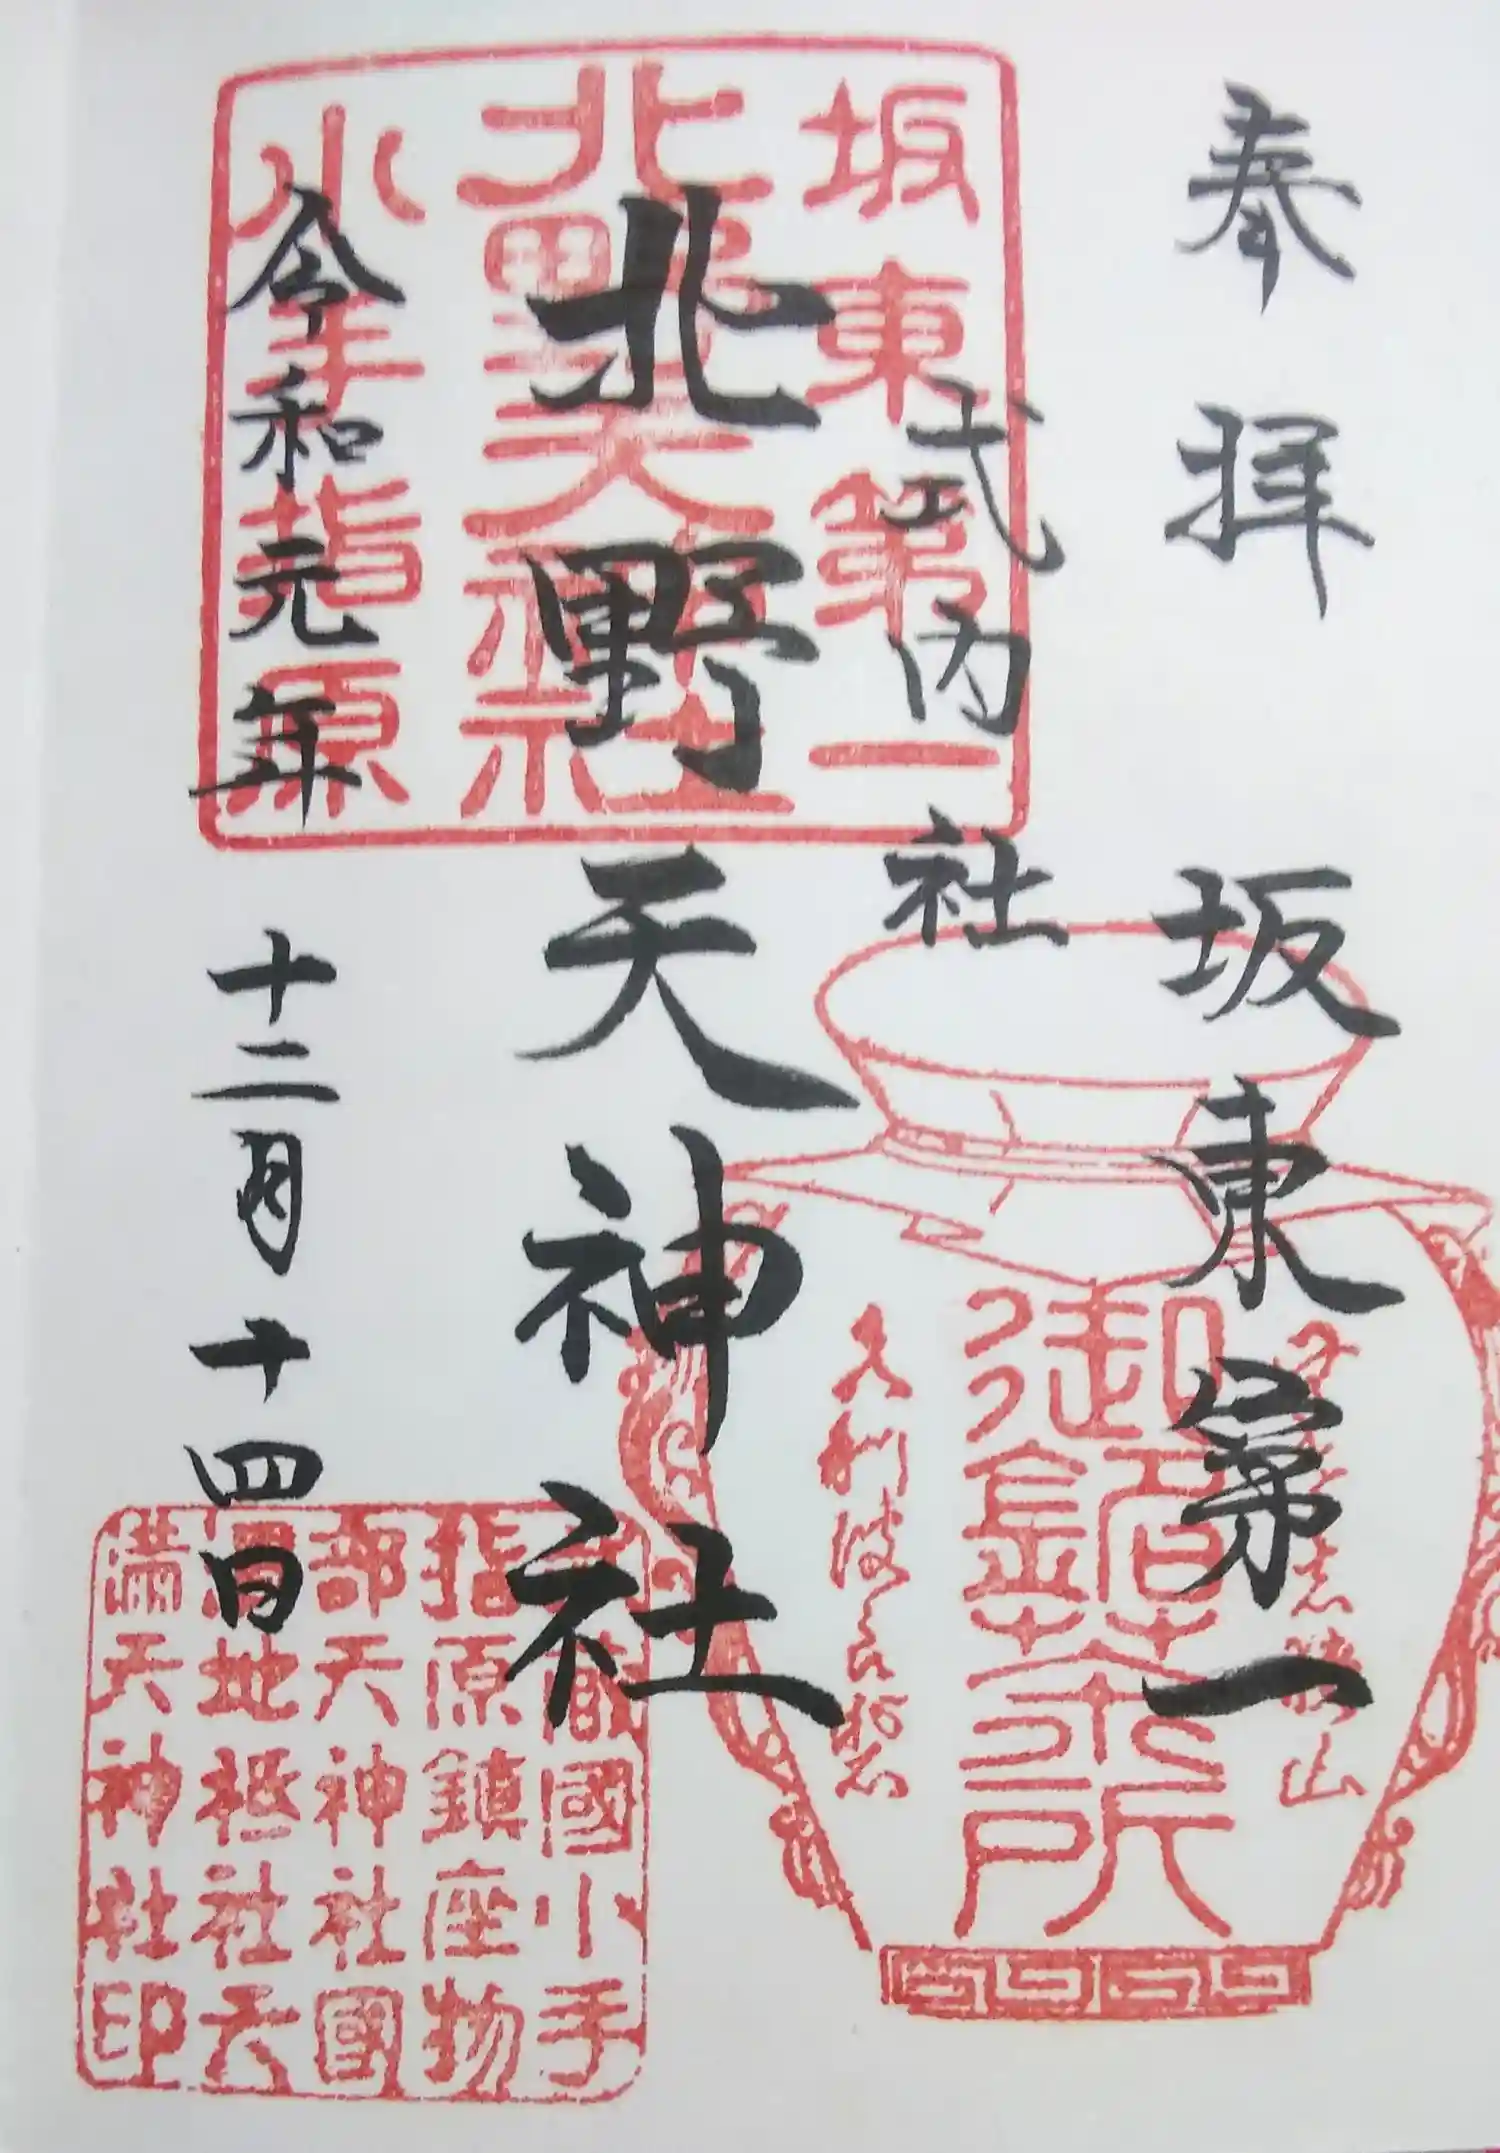 奉拝
坂東第一
式内社
北野天神社
令和元年
十二月十四日
坂東第一
北野天神社
小手指原
御宝前
武蔵國小手
指原鎮座物
部天神社國
渭地祇社天
満天神社印